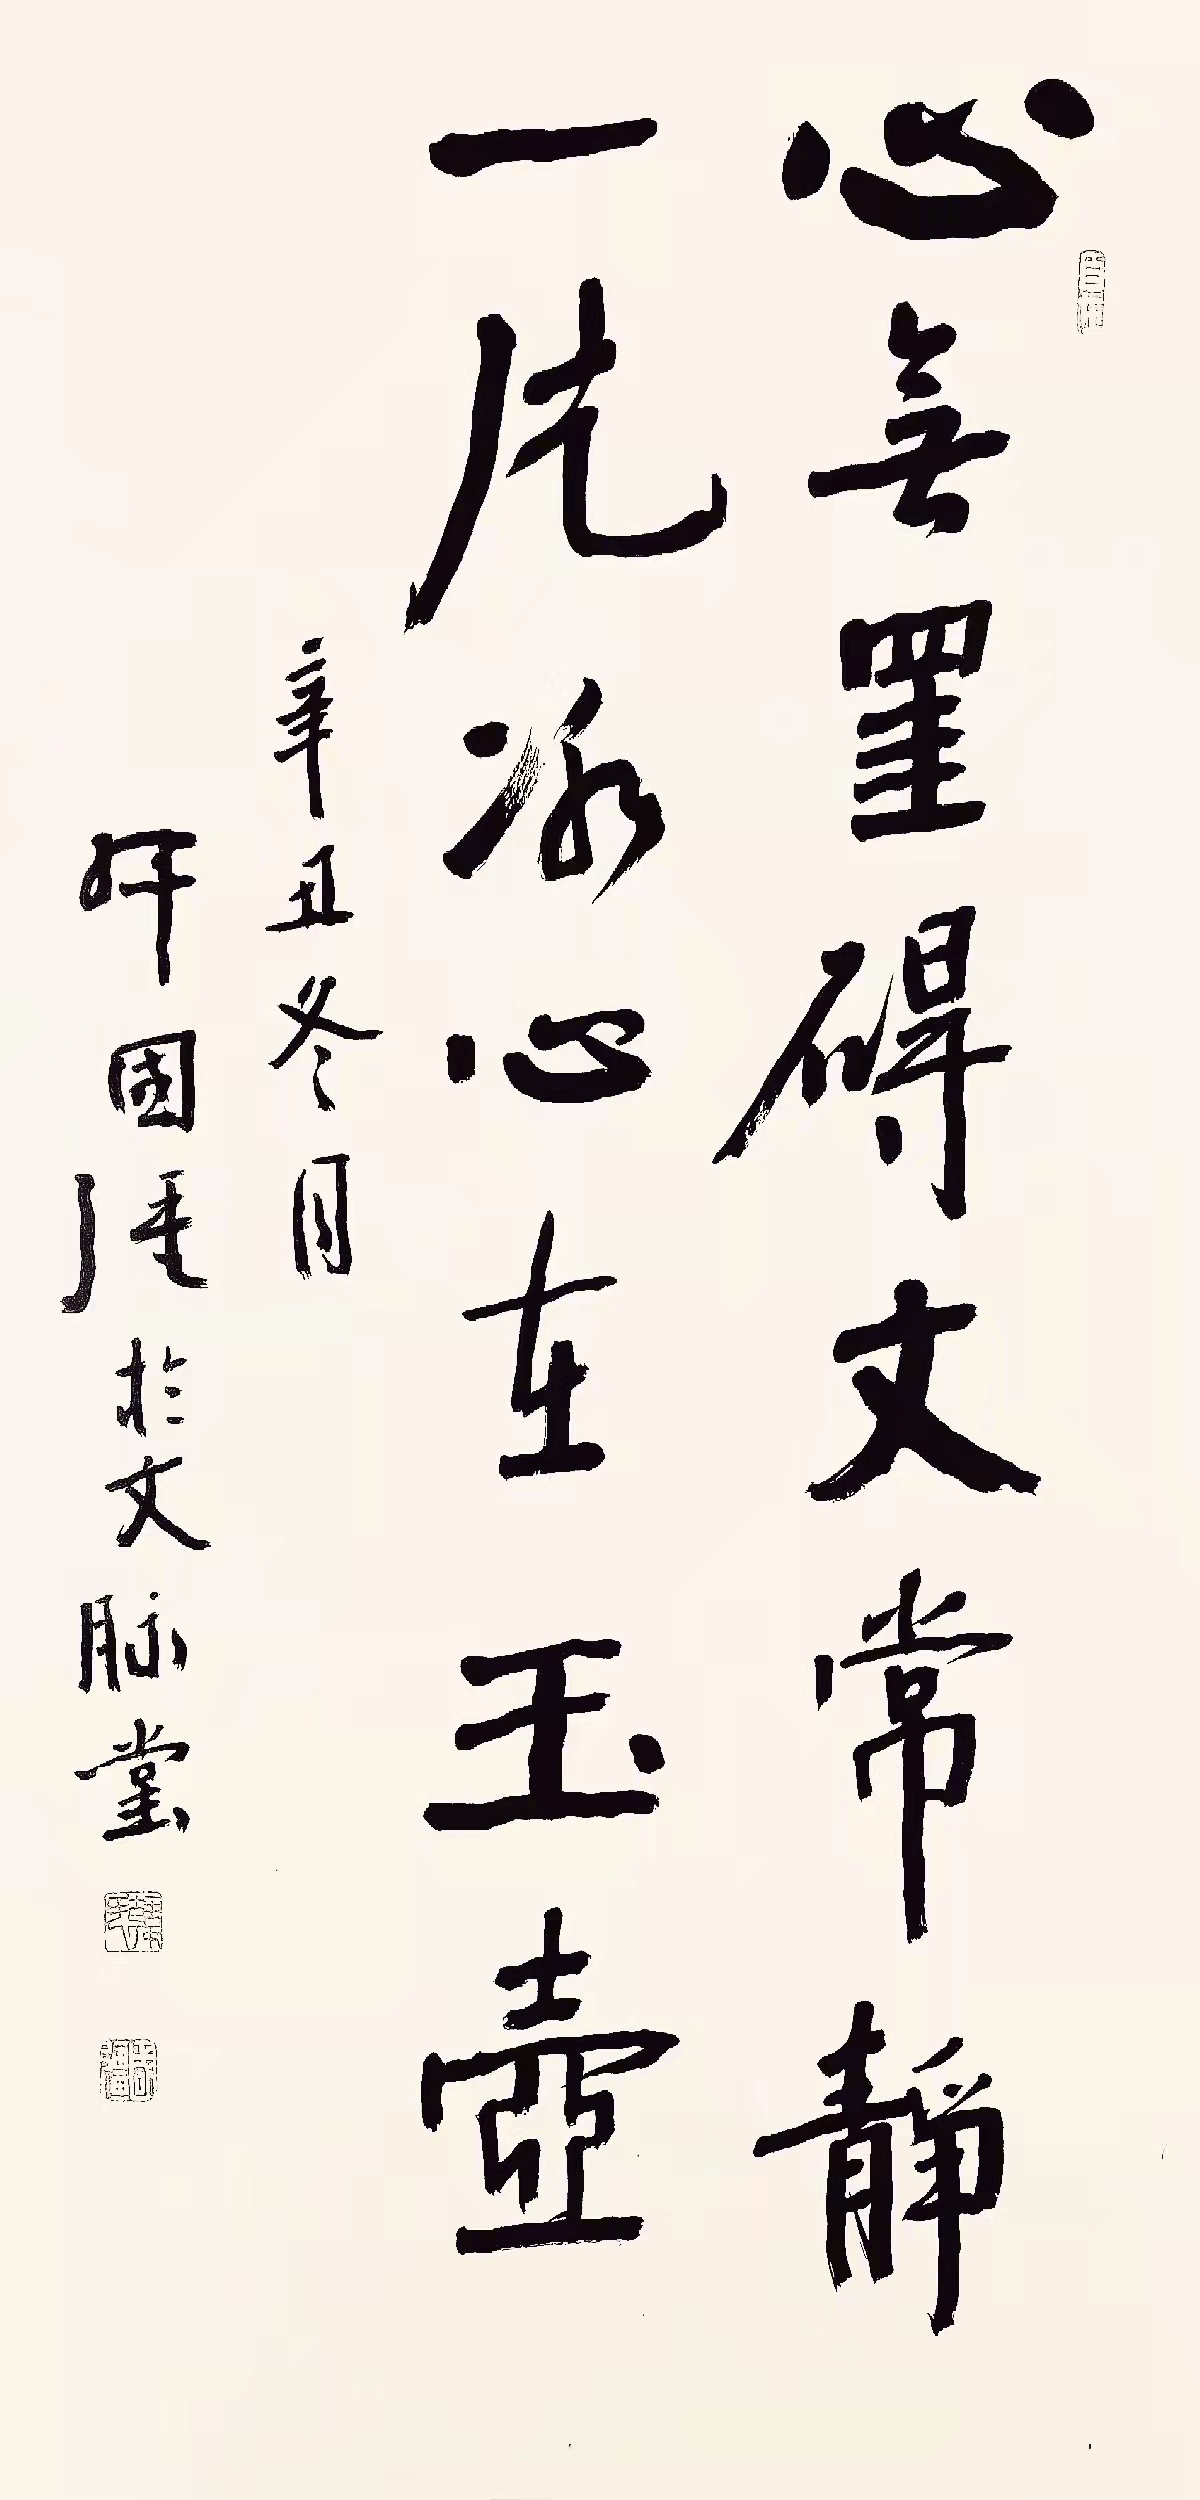 心無罣碍文常靜
一片冰心在玉壺
辛丑冬月
國於文脉堂